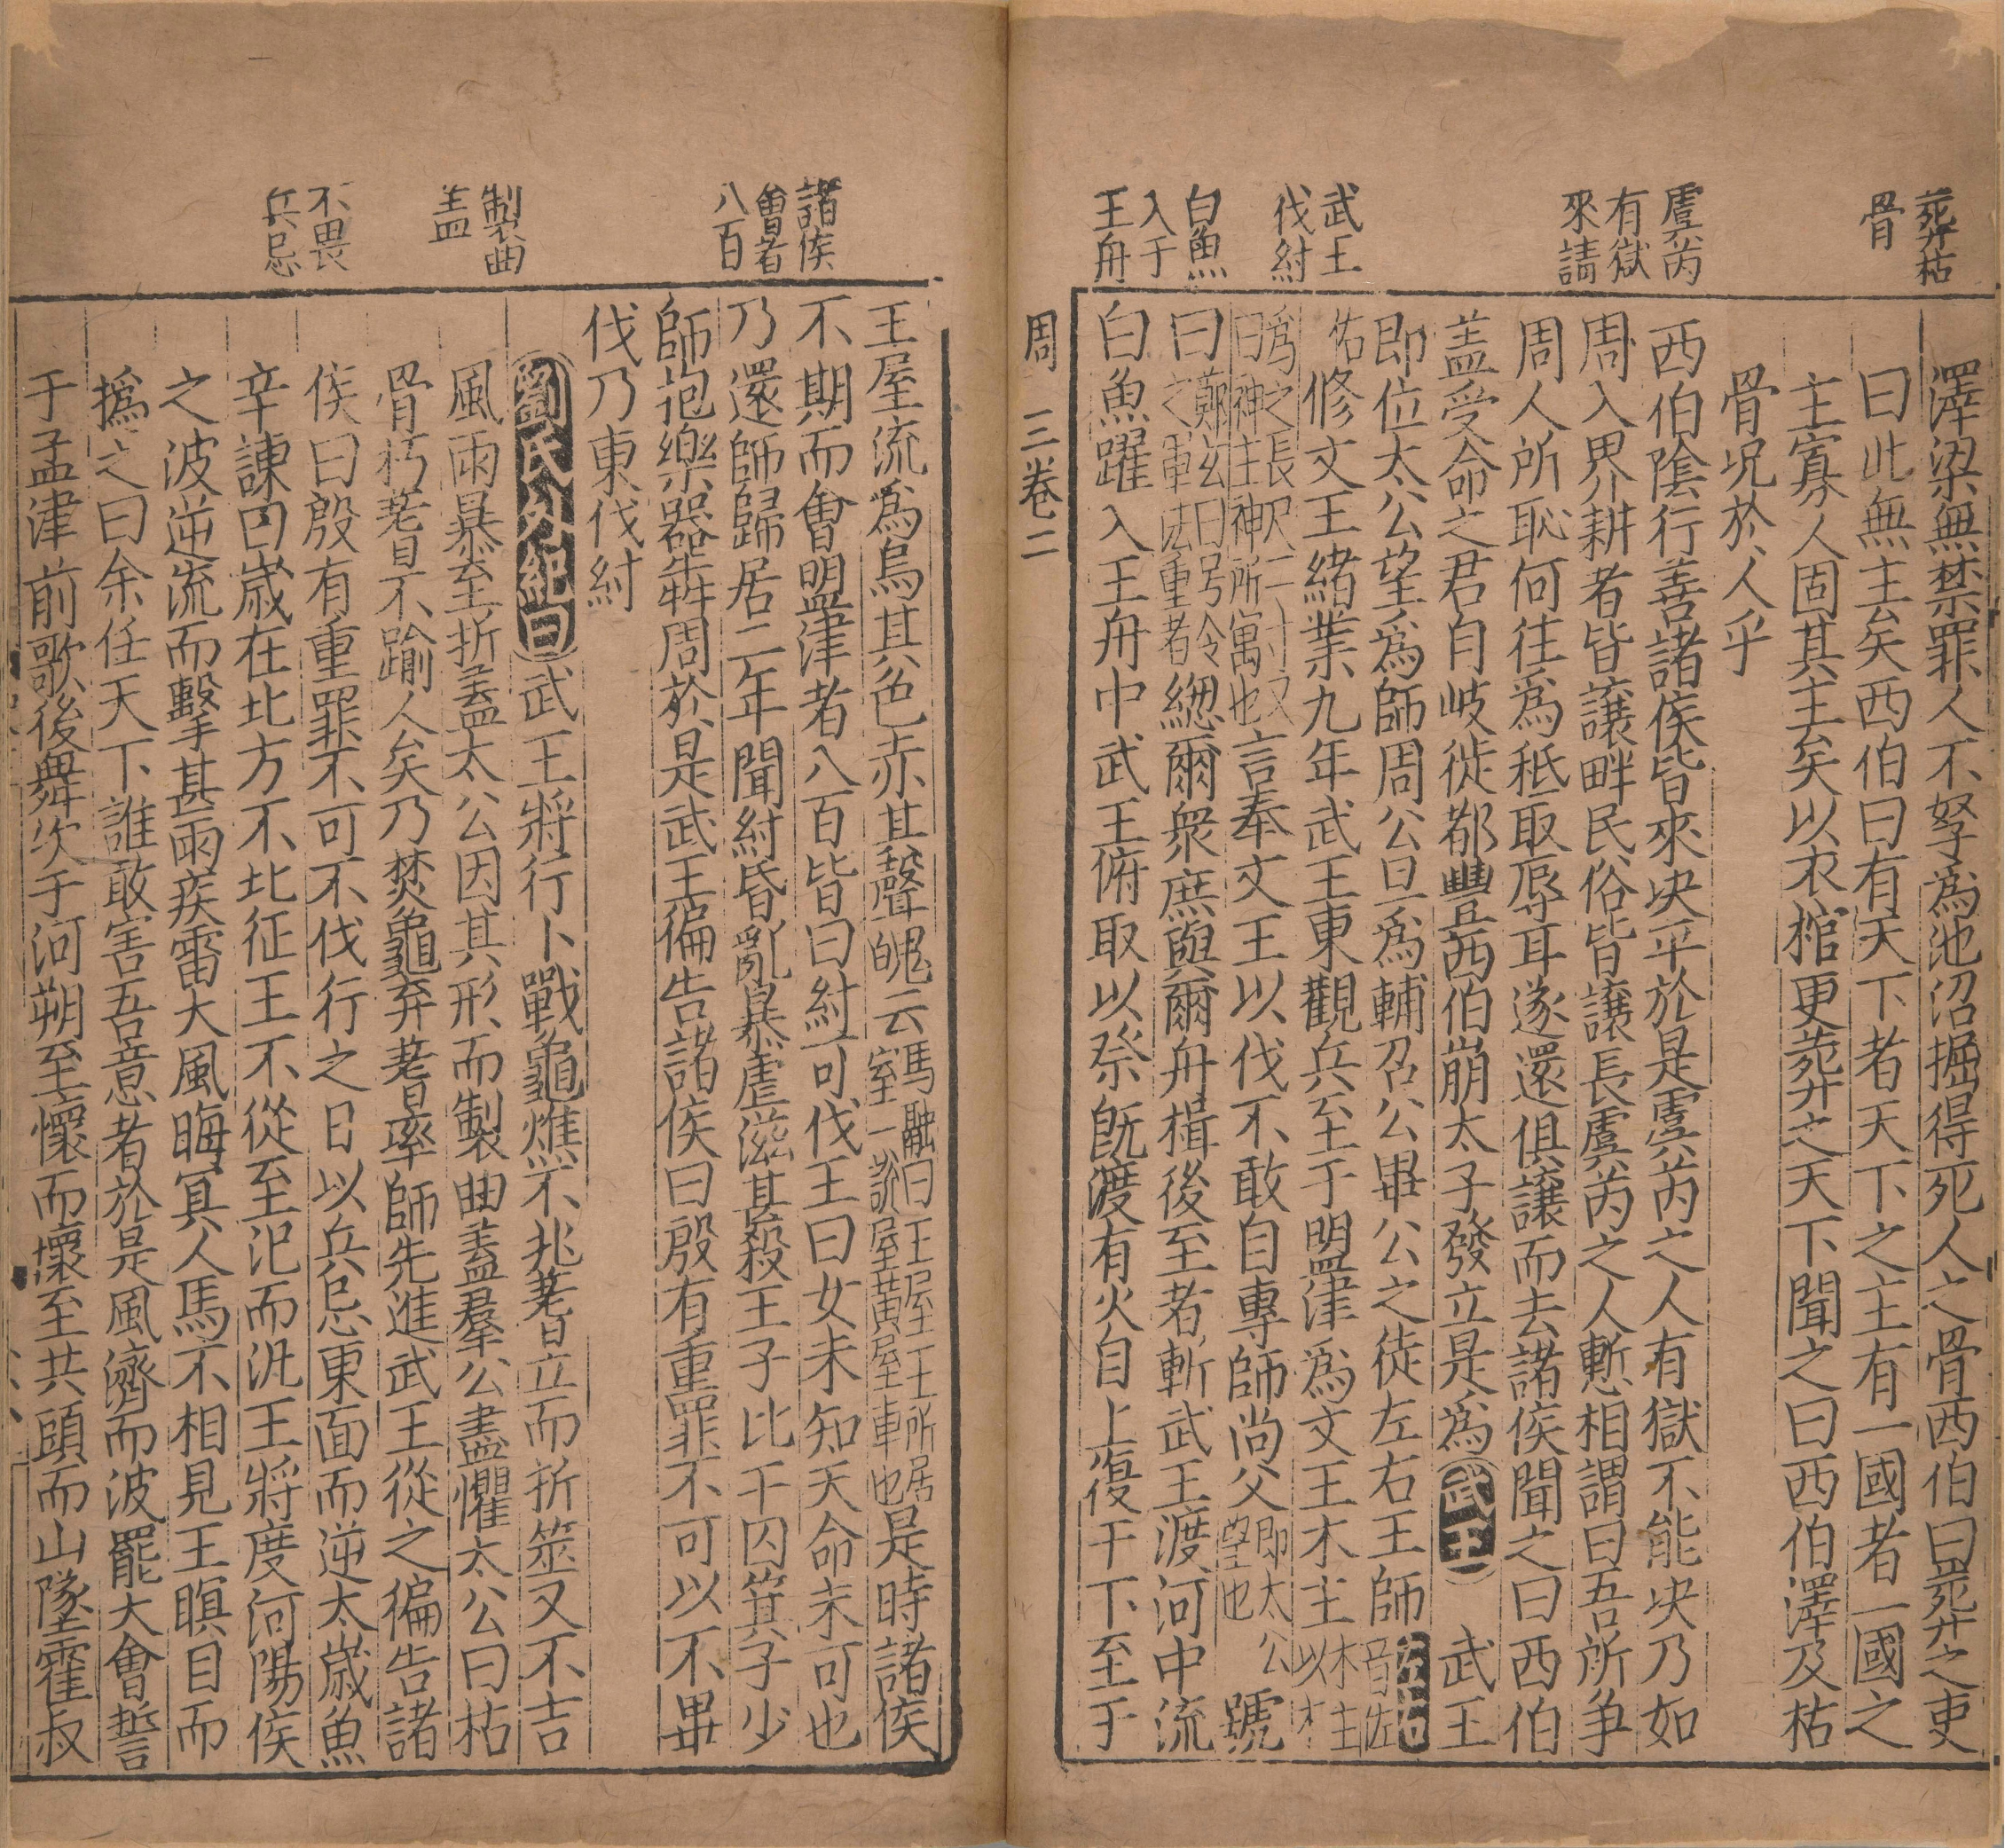 葬枯
骨
虞芮
有獄
來請
武王
伐紂
白魚
入于
王舟
澤梁無禁罪人不孥為池沼掘得死人之骨西伯曰葬之吏
曰此無主矣西伯曰有天下者天下之主有一國者一國之
主寡人固其主矣以衣棺更葬之天下聞之曰西伯澤及枯
骨况於人乎
西伯陰行善諸侯皆來决平於是虞芮之人有獄不能决乃如
周入界耕者皆讓畔民俗皆讓長虞芮之人慙相謂曰吾所争
周人所恥何往為秪取辱耳遂還俱讓而去諸侯聞之曰西伯
盖受命之君自岐徙都豐西伯崩太子發立是為武王 武王
即位太公望為師周公旦為輔召公畢公之徒左右王師左右音佐
佑修文王緒業九年武王東觀兵至于盟津為文王木主木主以木
為之長尺二寸又曰神主神所寓也言奉文王以伐不敢自專師尚父即太公望也號
曰鄭玄曰号令之軍法重者緫爾衆庶與爾舟楫後至者斬武王渡河中流
白魚躍入王舟中武王俯取以祭旣渡有火自上復于下至于
周 三卷 二
諸侯
會者
八百
製曲
盖
不畏
兵忌
王屋流為烏其色赤其聲魄云馬融曰王屋王所居室一說屋黄屋車也是時諸侯
不期而會盟津者八百皆曰紂可伐王曰女未知天命未可也
乃還師歸居二年聞紂昏亂暴虐滋甚殺王子比干囚箕子少
師抱樂器犇周於是武王徧告諸侯曰殷有重罪不可以不畢
伐乃東伐紂
劉氏外紀曰武王將行卜戰龜燋不兆蓍立而折筮又不吉
風雨暴至折盖太公因其形而製曲盖羣公盡懼太公曰枯
骨朽蓍不踰人矣乃焚龜弃蓍率師先進武王從之徧告諸
侯曰殷有重罪不可不伐行之日以兵忌東面而逆太歲魚
辛諫曰歲在北方不北征王不從至汜而汎王將度河陽侯
之波逆流而擊甚雨疾雷大風晦冥人馬不相見王瞋目而
撝之曰余任天下誰敢害吾意者於是風濟而波罷大會誓
于孟津前歌後舞次于河朔至懷而壞至共頭而山墜霍叔